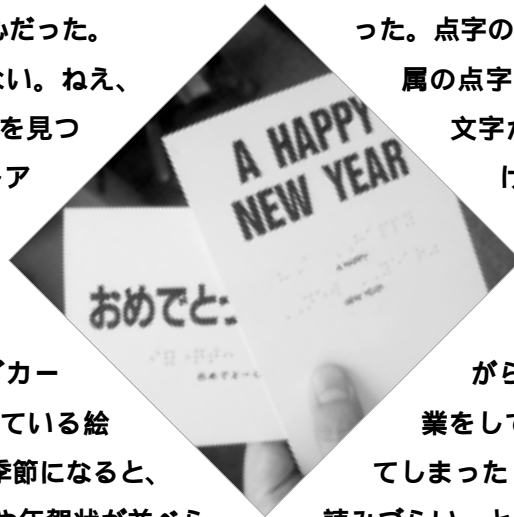 だった。
ない。ねえ、
を見つ
ア
カー
ている絵
季節になると、
った。点字の
属の点字
文字
がら
業をして
てしまった
A HAPPY
NEW YEAR
A HAPPY
NEW YEAR
おめでと
おめでとー